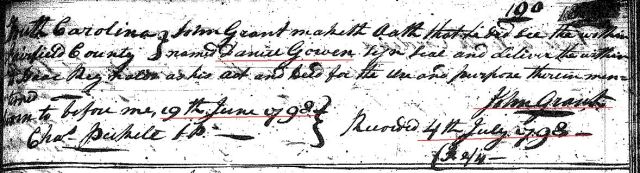 190
South Carolina } John Grant maketh Oath that he did see the within
Fairfield County } named Daniel Gowen sign seal and deliver the within
as his act and Deed for the use and purpose therein men
John Grant
sworn to before me, 19th June 1798
Recorded 4th July 1798
Chas. Pickett